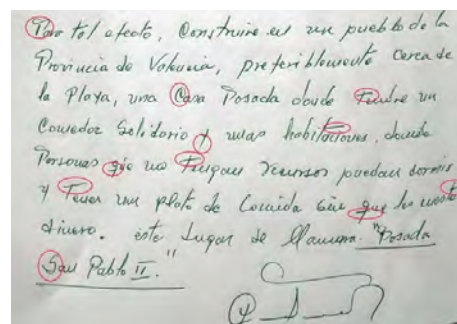 Para tal efecto, Construire en un pueblo de la
Provincia de Valencia, preferiblemente Cerca de
la Playa, una Casa Posada donde Tendre un
Comedor Solidario y unas habitaciones, donde
Personas que no Tengan recursos puedan dormir
y Tener un plato de Comida sin que les cueste
dinero. este Lugar se llamara "Posada
San Pablo II."